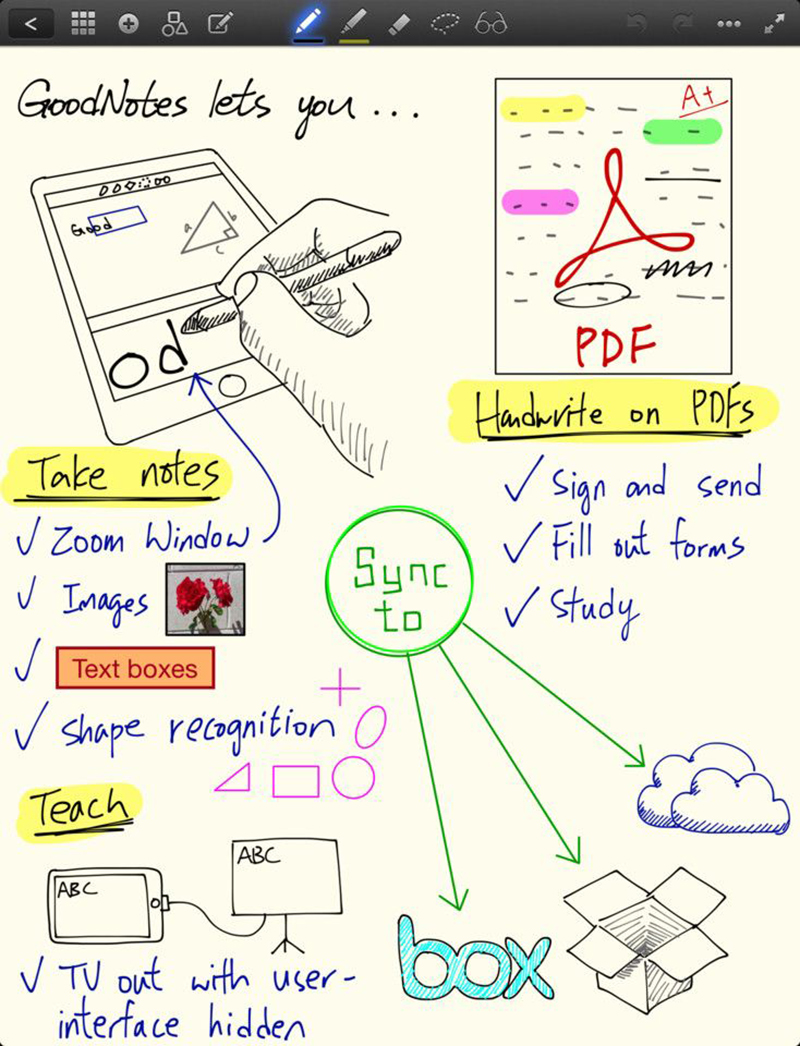 GoodNotes lets you ...
Good
a
b
c
od
A+
PDF
Handwrite on PDFs
✓ Sign and send
✓ Fill out forms
✓ Study
Take notes
✓ Zoom Window
✓ Images
✓ Text boxes
✓ Shape recognition
Sync
to
Teach
ABC
ABC
✓ TV out with user-
interface hidden
box